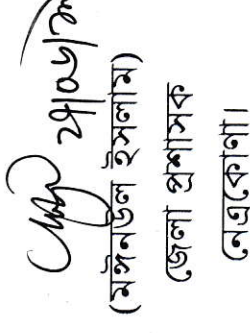 (মঈনউল ইসলাম)
জেলা প্রশাসক
নেত্রকোণা।